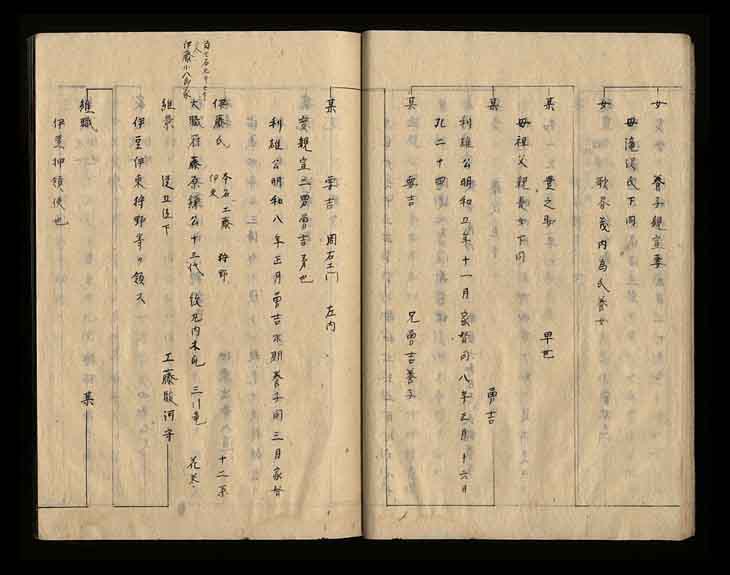 女 養子親宣妻
母滝湯氏下同
女 歌茂内為氏養女
某 豊之助 早世
母祖父親長女下同
某 勇吉
利雄公明和五年十一月家督同八年正月十六日
死二十四
某 要吉 兄勇吉養子
某 要吉 周右エ門 左内
実親宣二男勇吉弟也
利雄公明和八年正月勇吉末期養子同三月家督
伊藤氏 本名工藤 狩野 伊東 十二系
伊藤小八郎家
大職冠藤原鎌公十三代 従九内木瓜 三ツ竜 花菱
維景 従五位下 工藤駿河守
伊豆伊東狩野等ヲ領ス
維職 某
伊豆押領使也